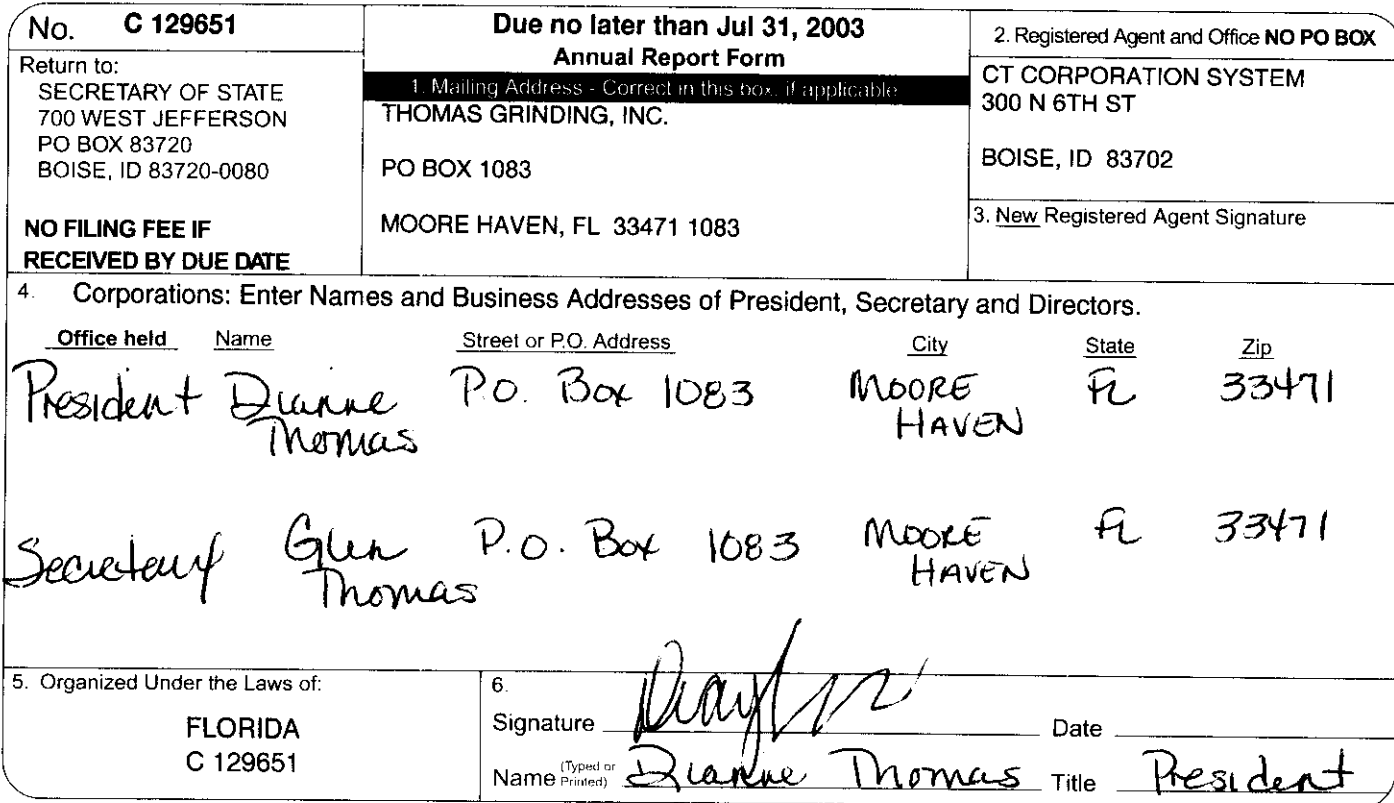 No. C 129651
Return to:
SECRETARY OF STATE
700 WEST JEFFERSON
PO BOX 83720
BOISE, ID 83720-0080
NO FILING FEE IF
RECEIVED BY DUE DATE
Due no later than Jul 31, 2003
Annual Report Form
1. Mailing Address - Correct in this box, if applicable
THOMAS GRINDING, INC.
PO BOX 1083
MOORE HAVEN, FL 33471 1083
2. Registered Agent and Office NO PO BOX
CT CORPORATION SYSTEM
300 N 6TH ST
BOISE, ID 83702
3. New Registered Agent Signature
4. Corporations: Enter Names and Business Addresses of President, Secretary and Directors.
Office held Name Street or P.O. Address City State Zip
President Dianne P.O. Box 1083 MOORE FL 33471
Thomas HAVEN
Secretary Glen P.O. Box 1083 MOORE FL 33471
Thomas HAVEN
5. Organized Under the Laws of:
FLORIDA
C 129651
6.
Signature Date
Name (Typed or Printed) Dianne Thomas Title President